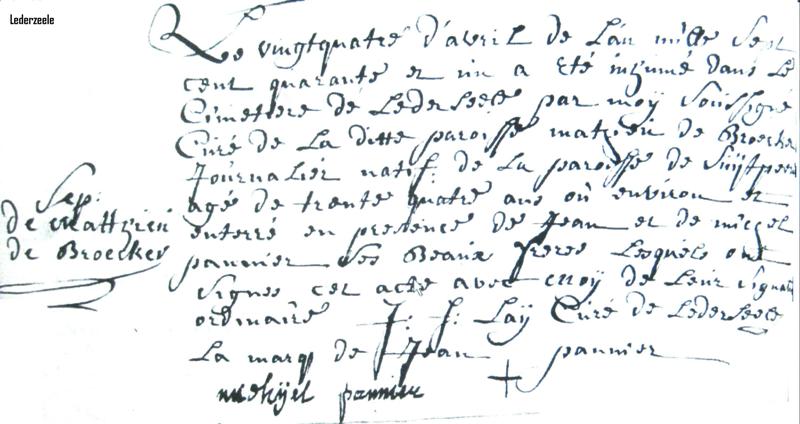 Lederzeele
Le vingtquatre d'avril de l'an mille sept
cent quarante et un a été inhumé dans le
Cimetiere de Lederseele par moy Soussigné
Curé de La ditte paroisse mathieu de Broecker
Journalier natif de La paroisse de
agé de trente quatre ans où environ et
enterré en presence de Jean et de michel
pannier Ses Beaux freres Lesquels ont
Signes cet acte avec moy de Leur Signature
ordinaire J: f: Laÿ Curé de Lederseele
La marq de Jean pannier
michyel pannier
Sep:
de Matthieu
de Broecker